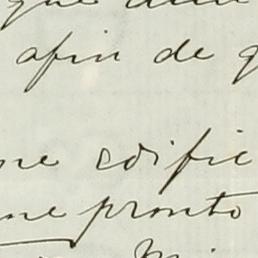 que
afin de q
ne edific
me pronto